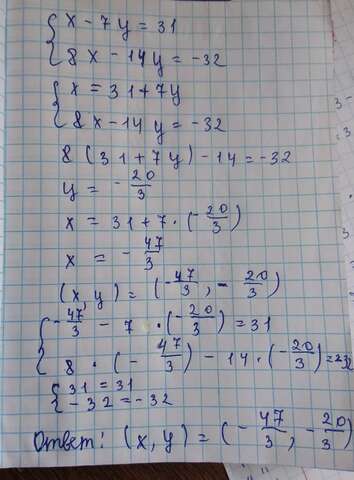 { x - 7y = 31
8x - 14y = -32
{ x = 31 + 7y
8x - 14y = -32
8(31 + 7y) - 14 = -32
y = - 20/3
x = 31 + 7 · (- 20/3)
x = - 47/3
(x, y) = (- 47/3, - 20/3)
{ - 47/3 - 7 · (- 20/3) = 31
8 · (- 47/3) - 14 · (- 20/3) = -32
{ 31 = 31
-32 = -32
Ответ: (x, y) = (- 47/3, - 20/3)